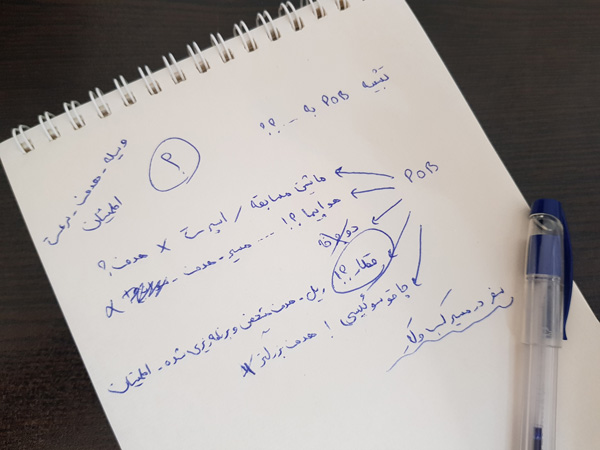 تشبیه POB به - ؟؟
وسیله - هدف - سرعت
اطمینان
؟
POB
ماشین مسابقه / اسپرت × هدف؟
هواپیما ؟! ... مسیر - هدف - ×
دوچرخه
قطار ؟! ریل - هدف مشخص و برنامه ریزی شده - اطمینان
چاقو سوئیسی ! هدف بزرگتر ×
سفر در مسیر کسب و کار